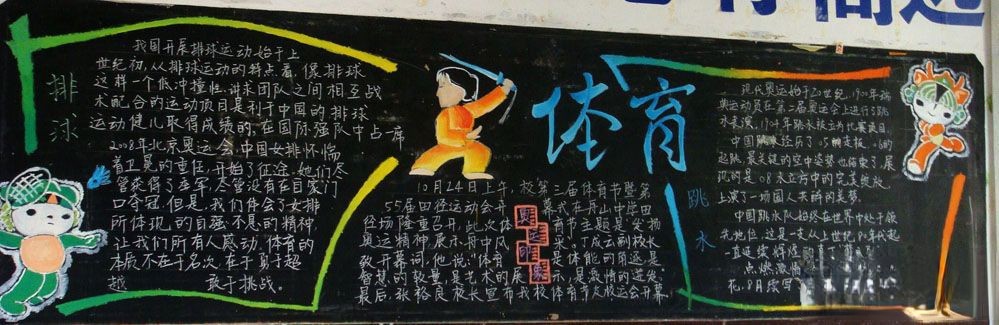 排球
我国开展排球运动始于上
世纪初,从排球运动的特点看,像排球
这样一个低冲撞性,讲求团队之间相互战
术配合的运动项目是利于中国的排球
运动健儿取得成绩的,在国际强队中占一席
2008年北京奥运会,中国女排怀惴
着卫冕的重任,开始了征途,她们尽
管获得了季军,尽管没有在自家门
口夺冠,但是,我们体会了女排
所体现的自强不息的精神,
让我们所有人感动,体育的
本质不在于名次,在于勇于超
越 敢于挑战。
体育
10月24日上午,校第三届体育节暨第
55届田径运动会开幕式在舟山中学田
径场隆重召开,此次体育节主题是发扬
奥运精神,展示舟中风采,丁成云副校长
致开幕词,他说:"体育是体能的角逐是
智慧的较量,是艺术的展示,是激情的迸发。"
最后,张裕良校长宣布我校体育节及校运会开幕!
奥运印象
跳水
现代奥运始于20世纪,1900年瑞
奥运动员在第二届奥运会上进行了跳
水表演,1904年跳水被立为比赛项目,
中国 经历了
起跳,最关键的空中姿势也结束了,展
现的是08水立方中的完美绽放,
上演了一场国人关群的美梦。
中国跳水队始终在世界中处于领
先地位,这是一支从上世纪80年代起
一直延续辉煌
点燃激情
花,8月续写